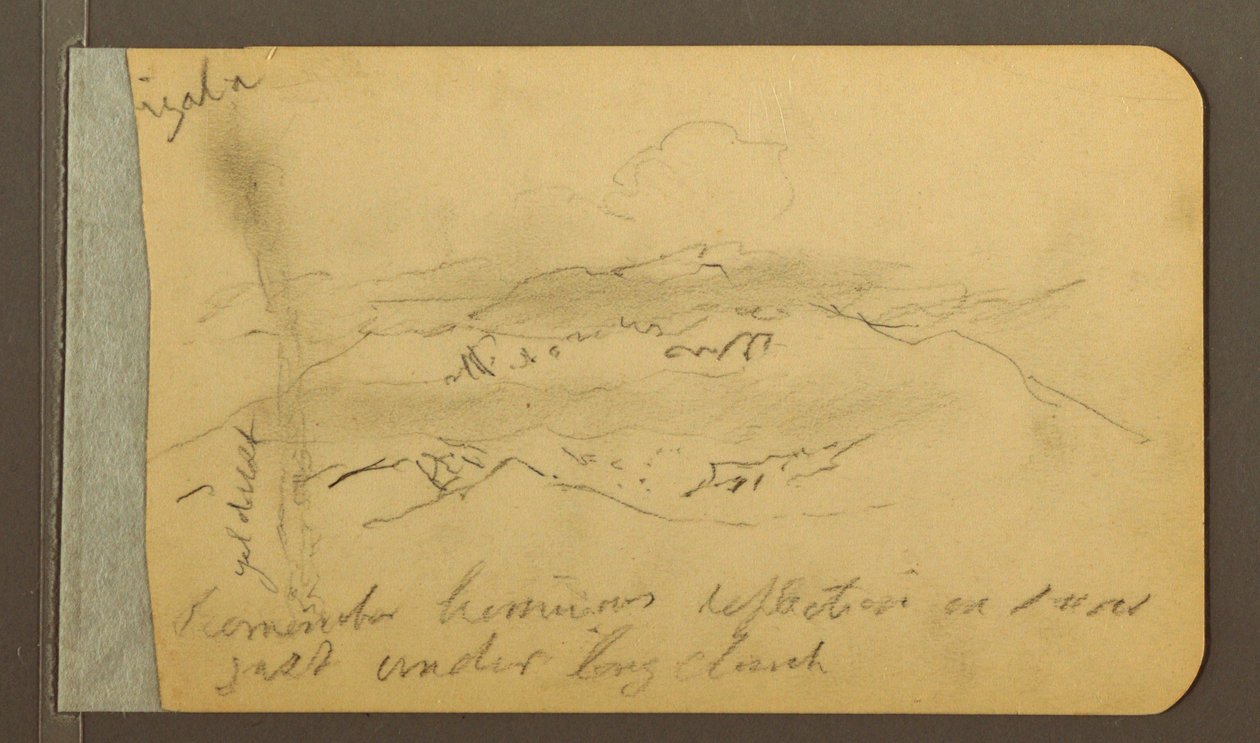 izaba
yel dust
Remember luminous reflection on snow
just under long cloud